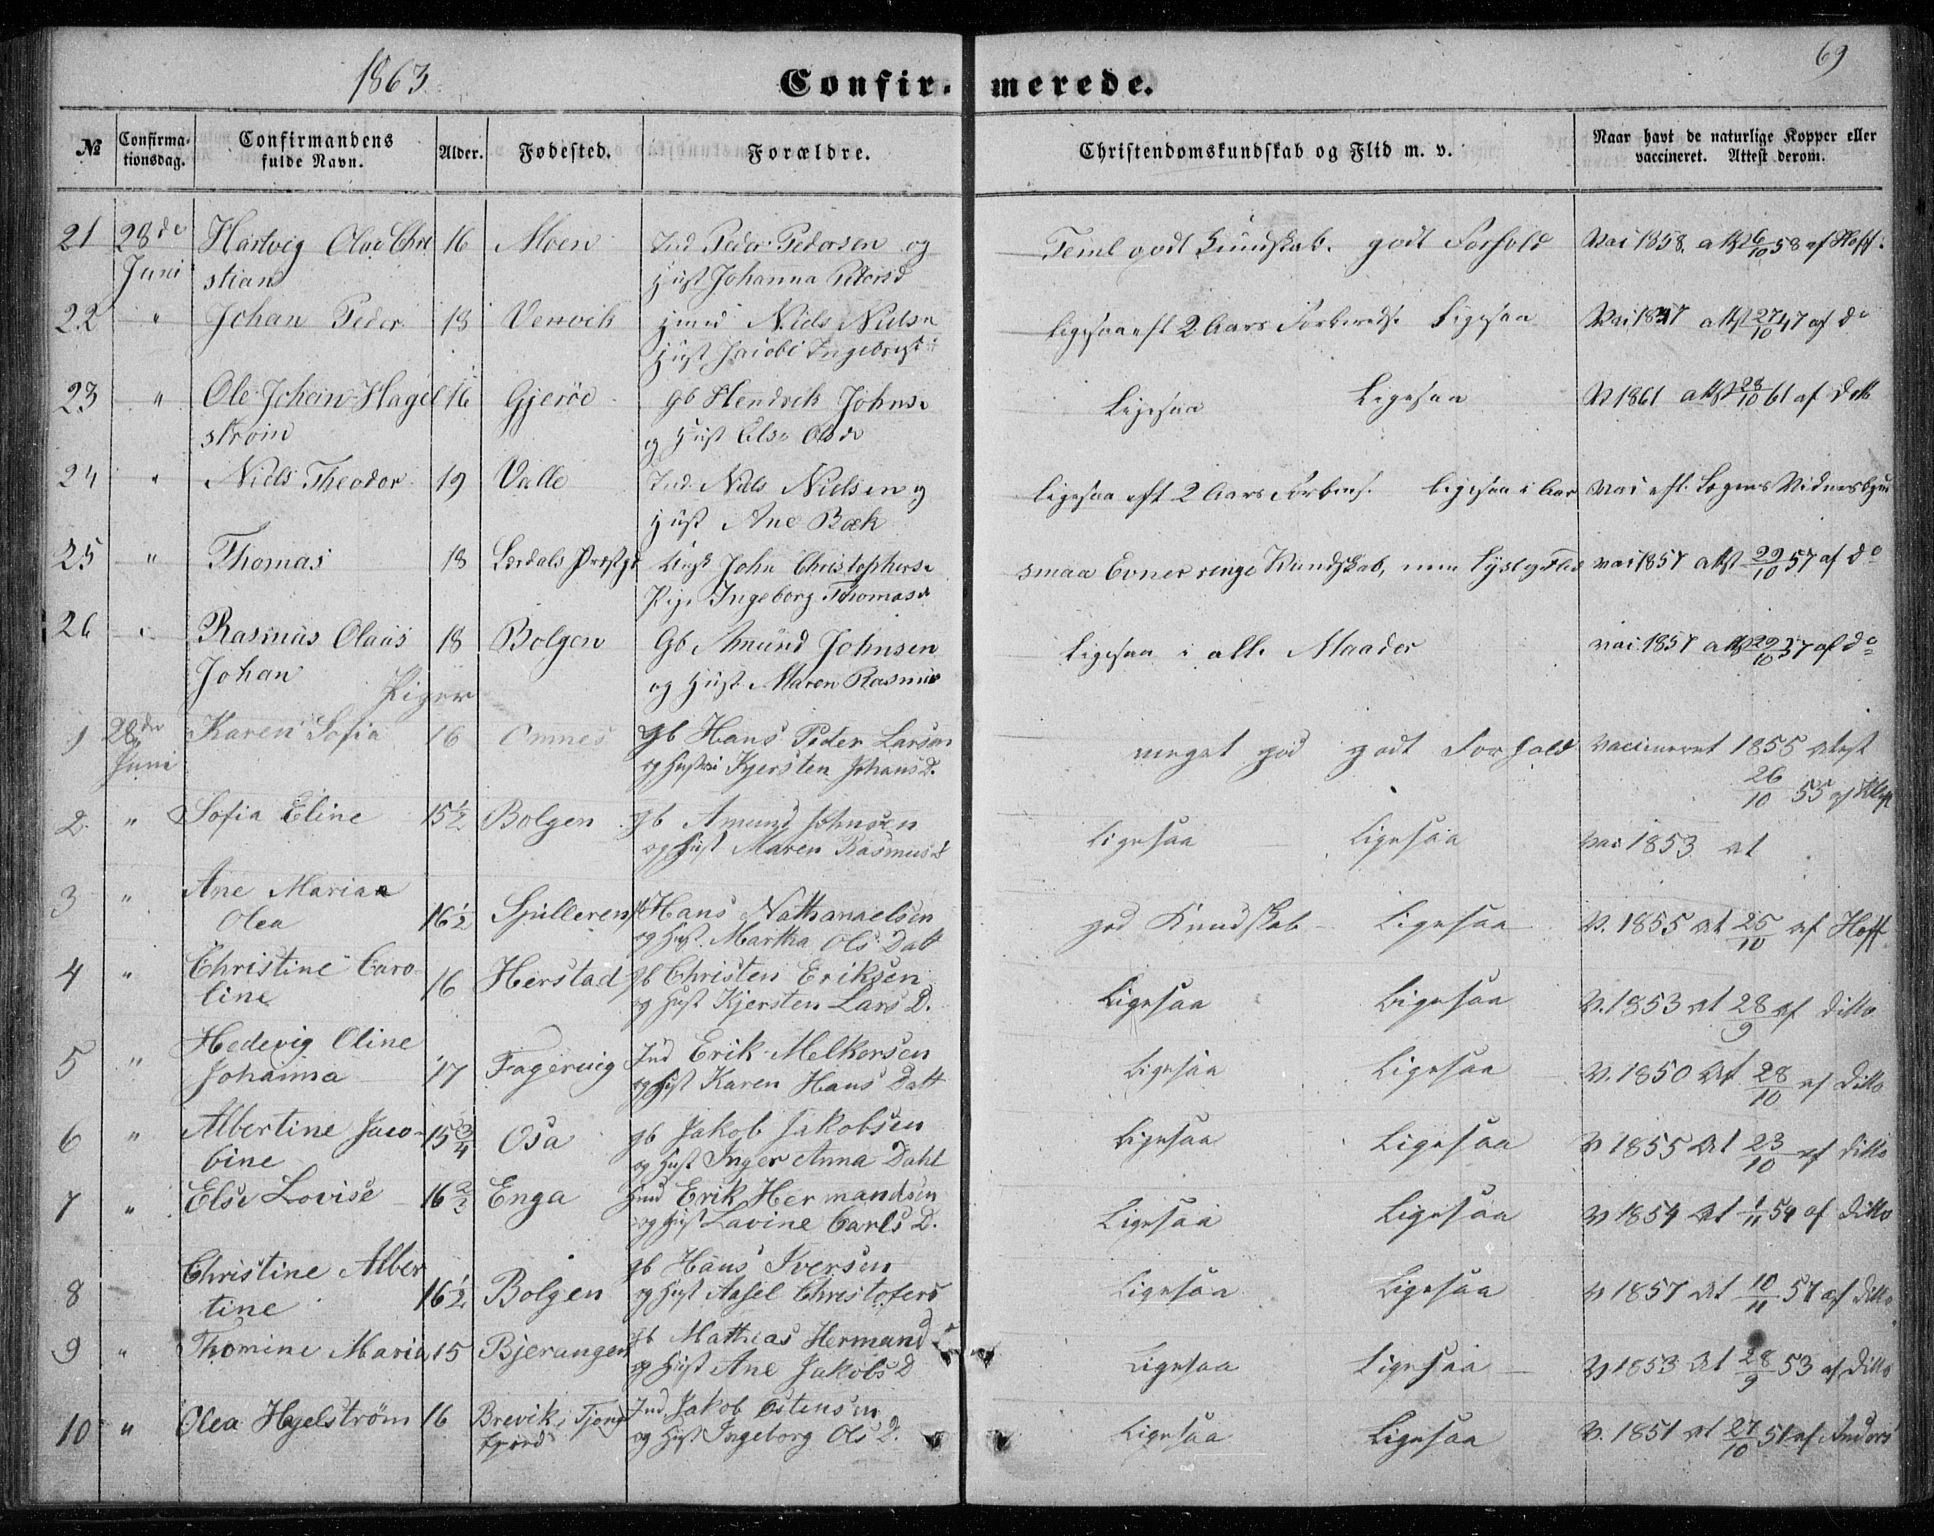 1863
69
Confir- merede.
№ Confirma-tionsdag. Confirmandens fulde Navn. Alder. Fødested. Forældre. Christendomskundskab og Flid m. v. Naar havt de naturlige Kopper eller vaccineret. Attest derom.
21 28de Hartvig Olai Chri 16 Moen Ind Peder Pedersen og godt Kundskab. godt Forhold Vac 1858. att 26/10 58 af Hoff.
Juni stian Hust Johanna Pedersd
22 " Johan Peder 18 Nils Nielsen Ligesaa eft 2 Aars Ligesaa Vac 1847 attst 27/10 47 af do
Hust Jacobi Ingebrigt
23 " Ole Johan Hagel 16 Gjerøe Gb Hendrik Johns Ligesaa Ligesaa V 1861 attst 28/10 61 af Ditto
strøm og Hust Else Olsd
24 " Niels Theodor 19 Valle Ind. Nils Nielsen og Ligesaa eft 2 Aars Ligesaa i Aar Vac eft. Vidnesbyrd
Hust Ane Bæk
25 " Thomas 18 John Christophers smaa Evner ringe Kundskab, men vac 1857 attst 29/10 57 af do
Pige Ingeborg Thomasd
26 " Rasmus Olaus 18 Bolgen Gb Amund Johnsen Ligesaa i alle Maader vac 1857 attst 29/10 57 af do
Johan og Hust Maren Rasmus
Piger
1 28de Karen Sofia 16 Omnes gb Hans Peder Larsen meget god godt Forhold vaccineret 1855 Atest
Juni og Hustrue Kjersten Johans D. 26/10 55 af
2. " Sofia Eline 15½ Bolgen gb Amund Johnsen Ligesaa Ligesaa vac 1853 at
og Hust Maren Rasmus
3 " Ane Maria
Olea 16½ Spilleren Hans Nathanaelsen god Kundskab Ligesaa V. 1855 At 25/10 af Hoff
og Hust. Martha Ols Datt
4 " Christine Caro- 16 Herstad gb Christen Eriksen Ligesaa Ligesaa V. 1853 at 28/9 af Ditto
line og Hust Kjersten Lars D.
5 " Hedevig Oline
Johanna 17 Fagervig Ind Erik Melkersen Ligesaa Ligesaa V. 1850 At 28/10 af Ditto
og Hust Karen Hans Datt
6 " Albertine Jaco- 15¾ Osa gb Jakob Jakobsen Ligesaa Ligesaa V 1855 At 23/10 af Ditto
bine og Hust Inger Anna Dahl
7 " Else Lovise 16⅔ Enga Huusmd Erik Hermandsen Ligesaa Ligesaa V 1854 At 1/11 54 af Ditto
og Hust Lavine Carls D.
8 Christine Alber 16½ Bolgen gb Hans Iversen Ligesaa Ligesaa V 1857 At 10/11 57 af Ditto
tine og Hust Aasel Christofers
9 " Thomine Maria 15 Bjerangen gb Mathias Hermand Ligesaa Ligesaa V 1853 At 28/9 53 af Ditto
og Hust Ane Jakobs D
10 " Olea Hgelstrøm 16 Brevik i Tjong Ind Jakob Ostensen Ligesaa Ligesaa V. 1851 at 27/10 51 af Anders
fjord og Hust Ingeborg Ols D.